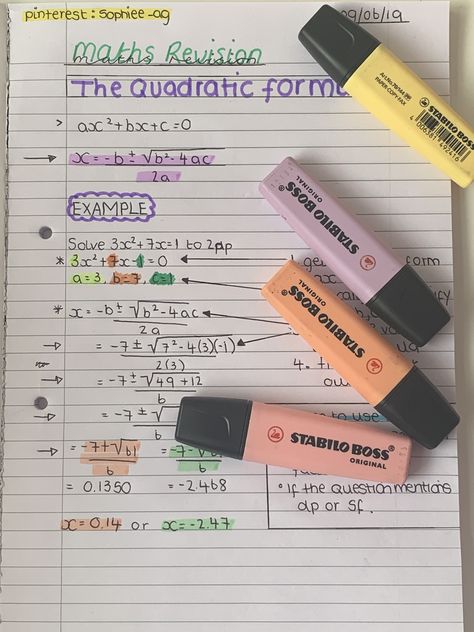 pinterest: sophiee_ag
09/06/19
Maths Revision
The Quadratic form
> ax²+bx+c=0
→ x = -b ± √b²-4ac
2a
EXAMPLE
Solve 3x²+7x=1 to 2dp
* 3x²+7x-1=0
a=3, b=7, c=-1
* x = -b ± √b²-4ac
2a
→ = -7 ± √7²-4(3)(-1)
2(3)
→ = -7 ± √49+12
6
→ = -7 ± √
6
→ = -7+√61 = -7-√
6 6
= 0.1350 = -2.468
x=0.14 or x=-2.47
1. ge form
4.
ou
to use
• If the question mentions
dp or sf.
Art.No 70/144
PAPER COPY FAX
STABILO BOSS
4 006381 492416
STABILO BOSS
ORIGINAL
STABILO BOSS
ORIGINAL
STABILO BOSS
ORIGINAL